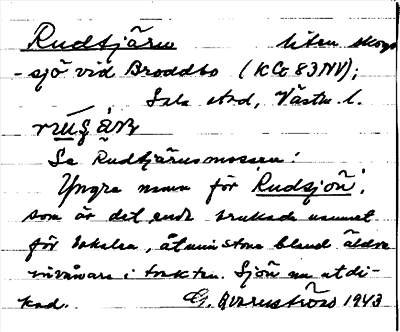 Rudtjärn liten skogs
-sjö vid Broddbo (KG 83NV);
Sala stad, Västm. l.
Se Rudtjärnsmossen!
Yngre namn för Rudsjön,
som är det enda brukade namnet
för lokalen, åtminstone bland äldre
invånare i trakten. Sjön nu utdi-
kad. G. Qvarnström 1943